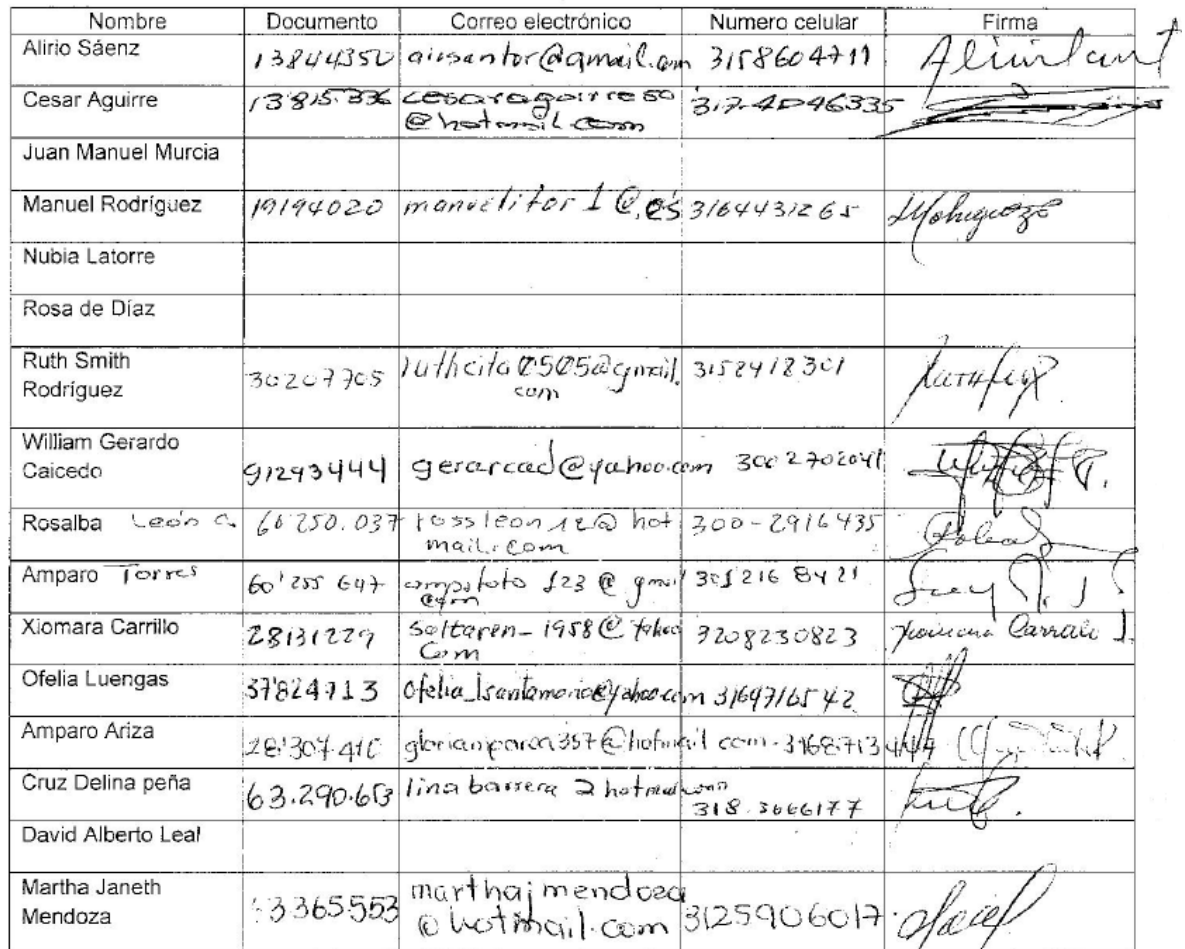 Nombre Documento Correo electrónico Numero celular Firma
Alirio Sáenz 13844350 airsantor@gmail.com 3158604711
Cesar Aguirre 13815.336 cesaraguirre50 317-4046335
@hotmail.com
Juan Manuel Murcia
Manuel Rodríguez 19194020 manuelitor1@.es 3164431265
Nubia Latorre
Rosa de Díaz
Ruth Smith
Rodríguez 30207705 ruthcita0505@gmail. 3152412301
com
William Gerardo
Caicedo 91293444 gerarcad@yahoo.com 3002702041
Rosalba León 60'250.037 rossleon12@hot 300-2916435
mail.com
Amparo Torres 60'255 647 123@gmail 301216 8421
com
Xiomara Carrillo 28131229 Soltaren_1958@Yahoo 3208230823 Carrillo
Com
Ofelia Luengas 37'824713 Ofelia_lsantamaria@yahoo.com 3164716542
Amparo Ariza 28'307.410 gloriamparoa357@hotmail com. 3168713444
Cruz Delina peña 63.290.653 lina barrera 2 hotmail.com
318.3666177
David Alberto Leal
Martha Janeth
Mendoza 63365553 marthajmendoza
@hotmail.com 3125906017